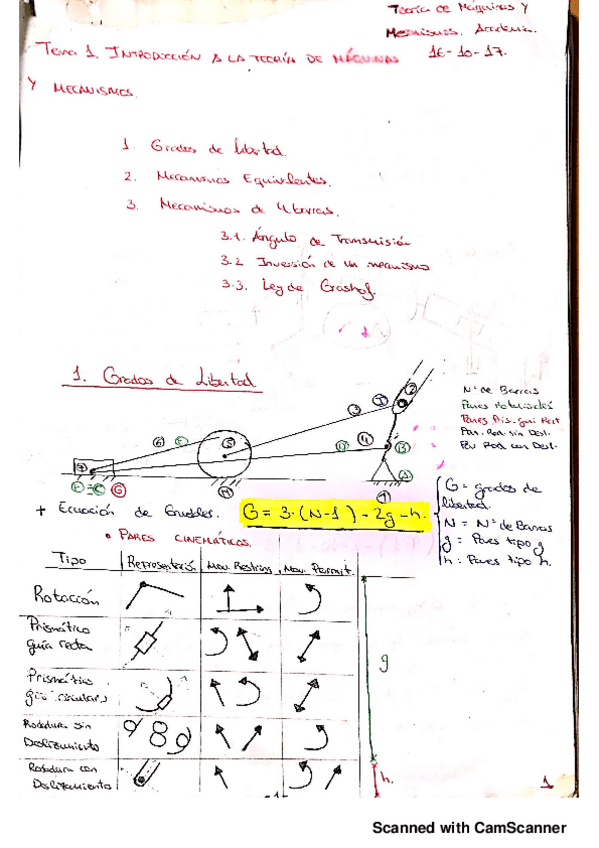 Teoría de Máquinas y
Mecanismos. Academia.
16-10-17.
Tema 1. INTRODUCCIÓN A LA TEORÍA DE MÁQUINAS
Y MECANISMOS.
1. Grados de libertad.
2. Mecanismos Equivalentes.
3. Mecanismos de 4 barras.
3.1. Ángulo de Transmisión
3.2 Inversión de un mecanismo
3.3. Ley de Grashof.
1. Grados de Libertad
Nº de Barras
Pares Rotacionales
Pares Pris. gui Rect
Par. Rod. sin Desl.
Par Rod con Desl.
+ Ecuación de Grubler. G = 3·(N-1) - 2g - h.
G = grados de
libertad.
N = Nº de Barras
g = Pares tipo g
h = Pares tipo h.
• PARES CINEMÁTICOS.
Tipo Representación Mov. Restring. Mov. Permit.
Rotación
Prismático
guía recta
Prismático
guía circular
Rodadura sin
Deslizamiento
Rodadura con
Deslizamiento
g
h.
1
Scanned with CamScanner